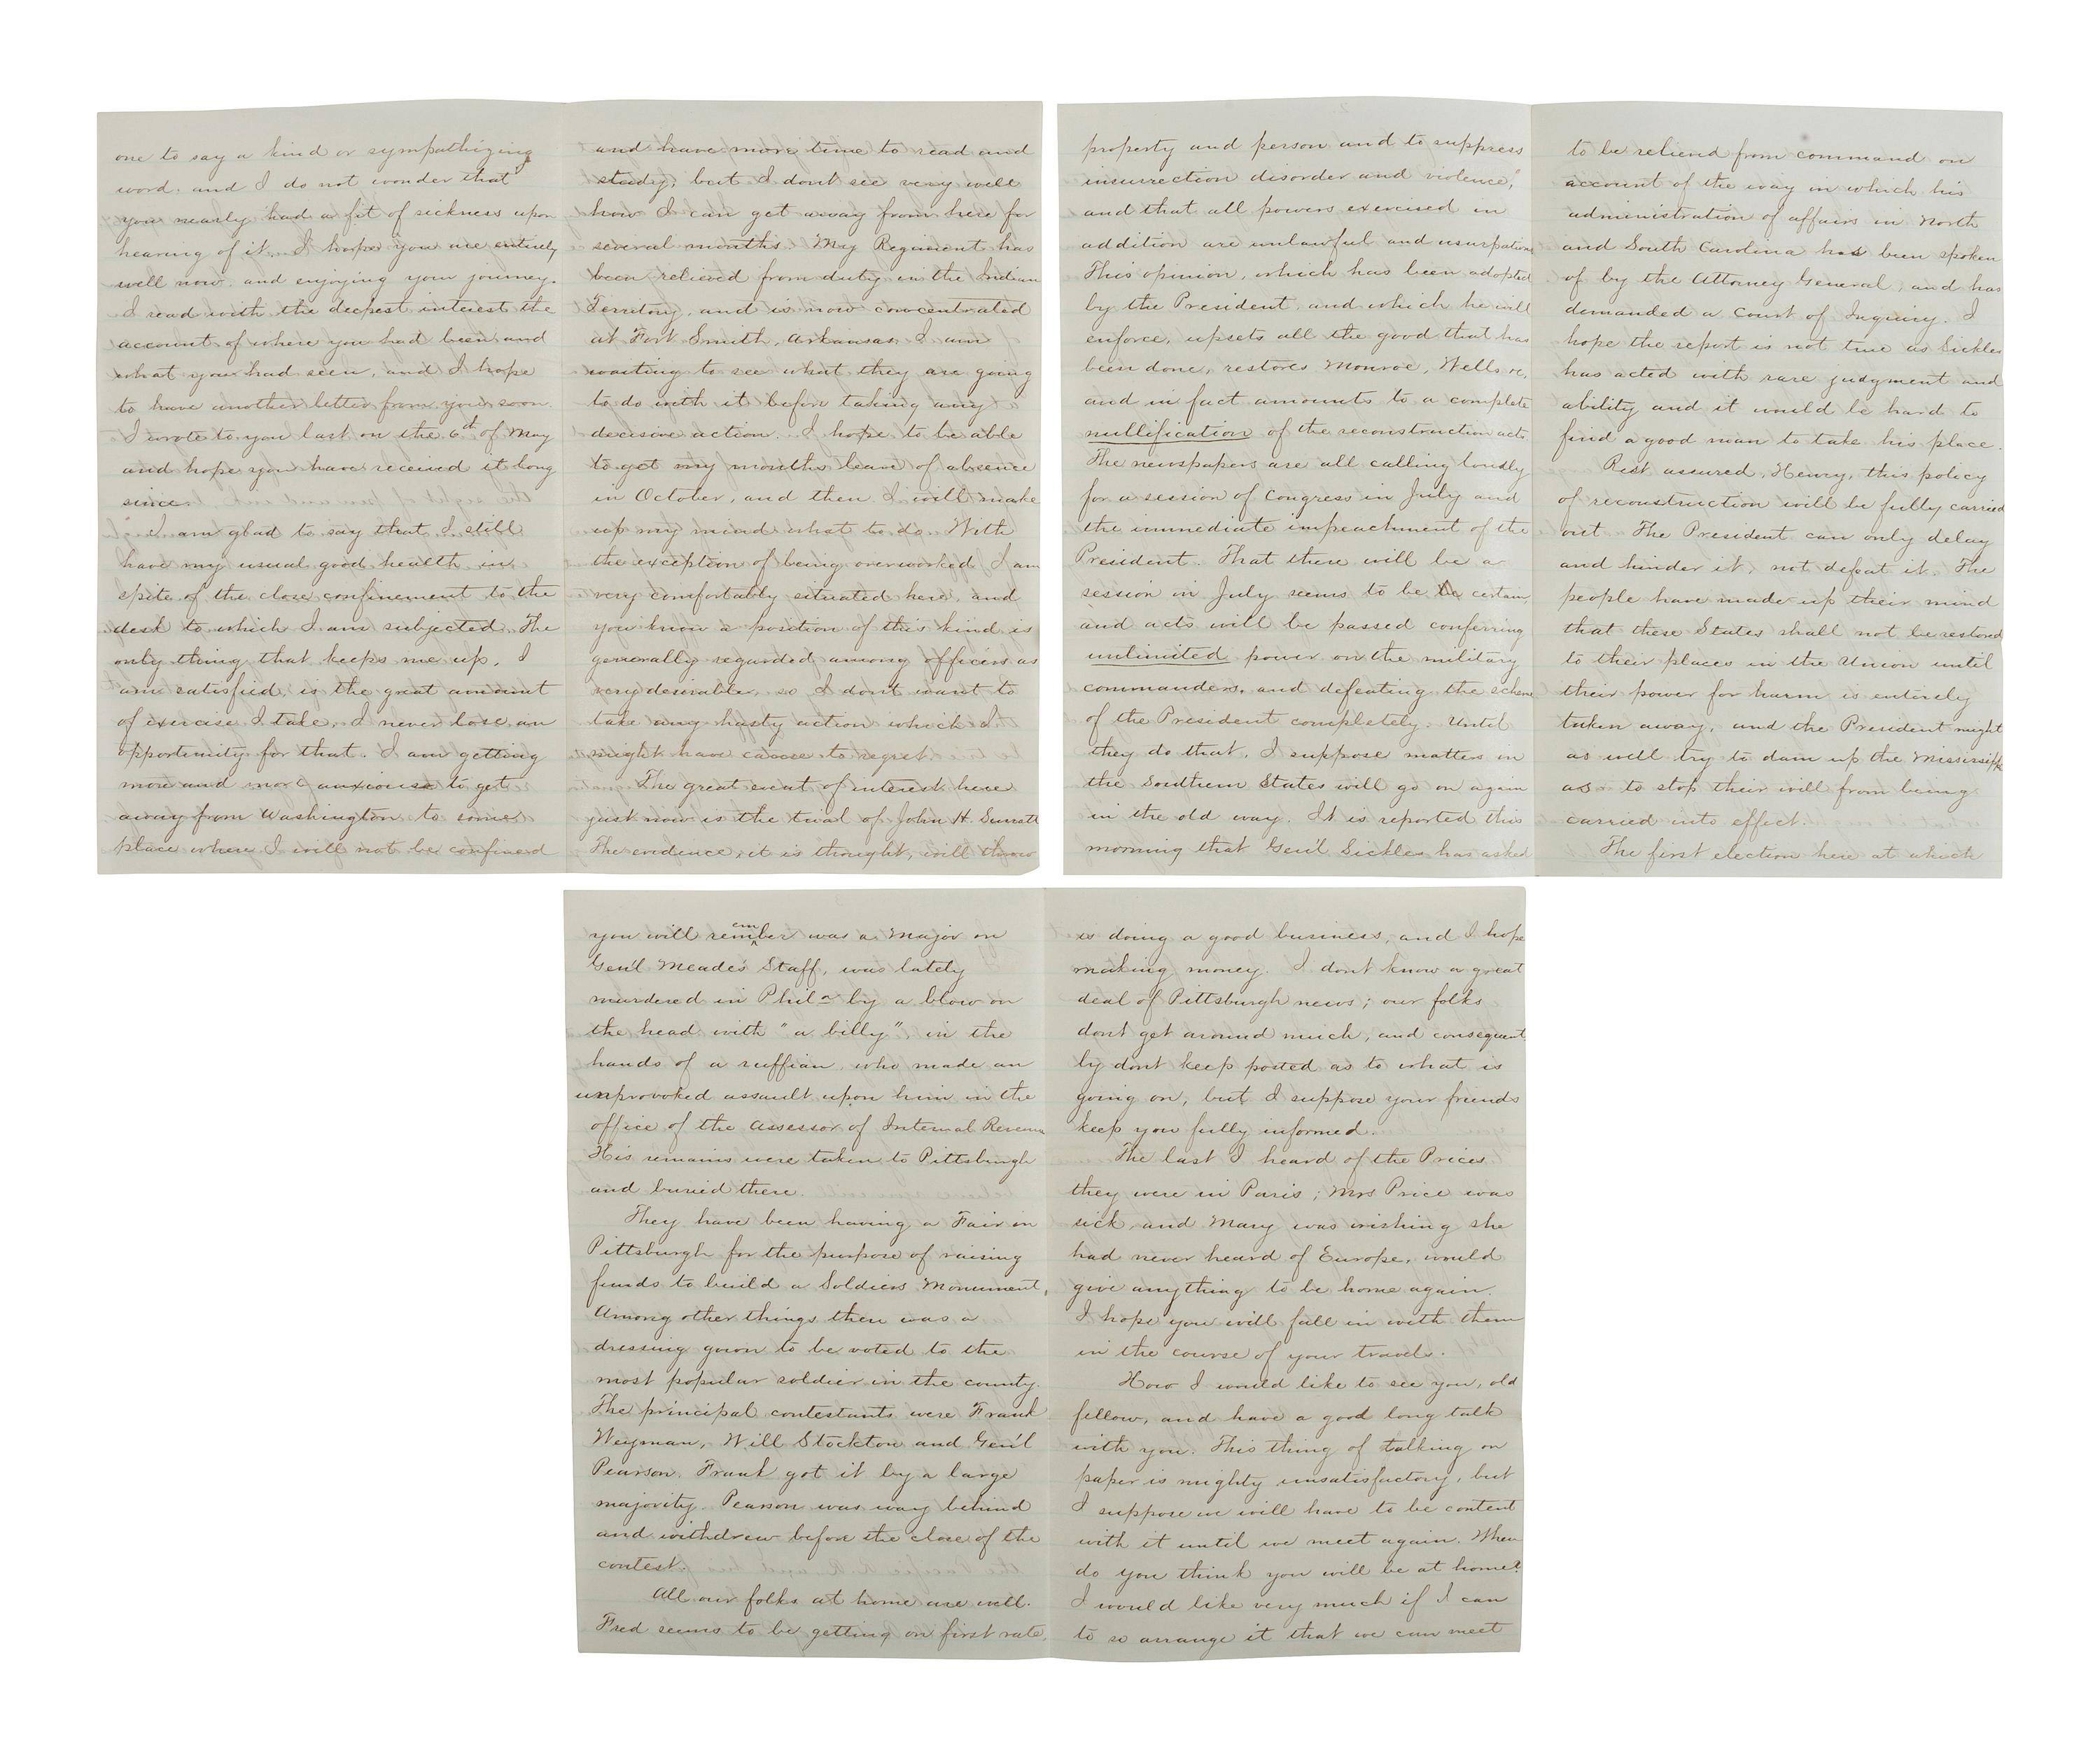 one to say a kind or sympathizing
word. and I do not wonder that
you nearly had a fit of sickness upon
hearing of it. I hope you are entirely
well now. and enjoying your journey.
I read with the deepest interest the
account of where you had been and
what you had seen, and I hope
to have another letter from you soon.
I wrote to you last on the 6th of May
and hope you have received it long
since.
I am glad to say that I still
have my usual good health in
spite of the close confinement to the
desk to which I am subjected. The
only thing that keeps me up, I
am satisfied, is the great amount
of exercise I take, I never lose an
opportunity for that. I am getting
more and more anxious to get
away from Washington to some
place where I will not be confined
and have more time to read and
study, but I dont see very well
how I can get away from here for
several months. My Regiment has
been relieved from duty in the Indian
Territory, and is now concentrated
at Fort Smith, Arkansas. I am
waiting to see what they are going
to do with it before taking any
decisive action. I hope to be able
to get my months leave of absence
in October, and then I will make
up my mind what to do. With
the exception of being overworked I am
very comfortably situated here, and
you know a position of this kind is
generally regarded among officers as
very desirable, so I dont want to
take any hasty action which I
might have cause to regret.
The great event of interest here
just now is the trial of John H. Surratt
The evidence, it is thought, will throw
property and person and to suppress
insurrection disorder and violence",
and that all powers exercised in
addition are unlawful and usurpations
This opinion, which has been adopted
by the President, and which he will
enforce, upsets all the good that has
been done, restores Monroe, Wells &c,
and in fact amounts to a complete
nullification of the reconstruction acts.
The newspapers are all calling loudly
for a session of Congress in July and
the immediate impeachment of the
President. That there will be a
session in July seems to be certain,
and acts will be passed conferring
unlimited power on the military
commanders, and defeating the scheme
of the President completely. Until
they do that, I suppose matters in
the Southern States will go on again
in the old way. It is reported this
morning that Gen'l Sickles has asked
to be reliend from command on
account of the way in which his
administration of affairs in North
and South Carolina has been spoken
of by the Attorney General, and has
demanded a Court of Inquiry. I
hope the report is not true as Sickles
has acted with rare judgment and
ability and it would be hard to
find a good man to take his place.
Rest assured, Henry, this policy
of reconstruction will be fully carried
out. The President can only delay
and hinder it, not defeat it. The
people have made up their mind
that these States shall not be restored
to their places in the Union until
their power for harm is entirely
taken away, and the President might
as well try to dam up the Mississippi
as to stop their will from being
carried into effect.
The first election here at which
you will remember was a Major on
Gen'l Meade's Staff, was lately
murdered in Phila by a blow on
the head with "a billy", in the
hands of a ruffian, who made an
unprovoked assault upon him in the
office of the Assessor of Internal Revenue
His remains were taken to Pittsburgh
and buried there.
They have been having a Fair in
Pittsburgh for the purpose of raising
funds to build a Soldiers Monument,
Among other things there was a
dressing gown to be voted to the
most popular soldier in the county.
The principal contestants were Frank
Weyman, Will Stockton and Gen'l
Pearson. Frank got it by a large
majority. Pearson was way behind
and withdrew before the close of the
contest.
All our folks at home are well.
Fred seems to be getting on first rate,
is doing a good business, and I hope
making money. I dont know a great
deal of Pittsburgh news; our folks
dont get around much, and consequent
ly dont keep posted as to what is
going on, but I suppose your friends
keep you fully informed.
The last I heard of the Prices
they were in Paris; Mrs Price was
sick, and Mary was wishing she
had never heard of Europe, would
give anything to be home again.
I hope you will fall in with them
in the course of your travels.
How I would like to see you, old
fellow, and have a good long talk
with you. This thing of talking on
paper is mighty unsatisfactory, but
I suppose we will have to be content
with it until we meet again. When
do you think you will be at home?
I would like very much if I can
to so arrange it that we can meet